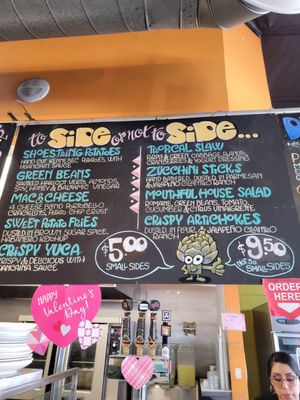 to SIDE or not to SIDE...
SHOESTRING POTATOES
HAND CUT KENNEBEC POTATOES, WITH
SAUCE
GREEN BEANS
HARICOT VERTS, ALMONDS,
SOY, HONEY & BALSAMIC VINEGAR
MAC & CHEESE
CHEESE, PORTABELLO
CRACKLINS, POTATO CHIP CRUST
SWEET POTATO FRIES
DUSTED IN PUMPKIN SUGAR SPICE,
HABANERO KETCHUP
CRISPY YUCA
CRISPY & DELICIOUS WITH
SAUCE
$5.00
SMALL SIDES
TROPICAL SLAW
RED & GREEN CABBAGE,
CRANBERRIES & YOGURT DRESSING
ZUCCHINI STICKS
HAND BREADED, DUSTED IN PARMESAN
JALAPEÑO CILANTRO RANCH
MOUTHFUL HOUSE SALAD
ROMAINE, GREEN BEANS, TOMATO,
& CITRUS VINAIGRETTE
CRISPY ARTICHOKES
DUSTED IN FLOUR & JALAPEÑO CILANTRO
RANCH
$9.50
NOT SO
SMALL SIDES
HAPPY
Valentine's
DAY!
ORDER
HERE